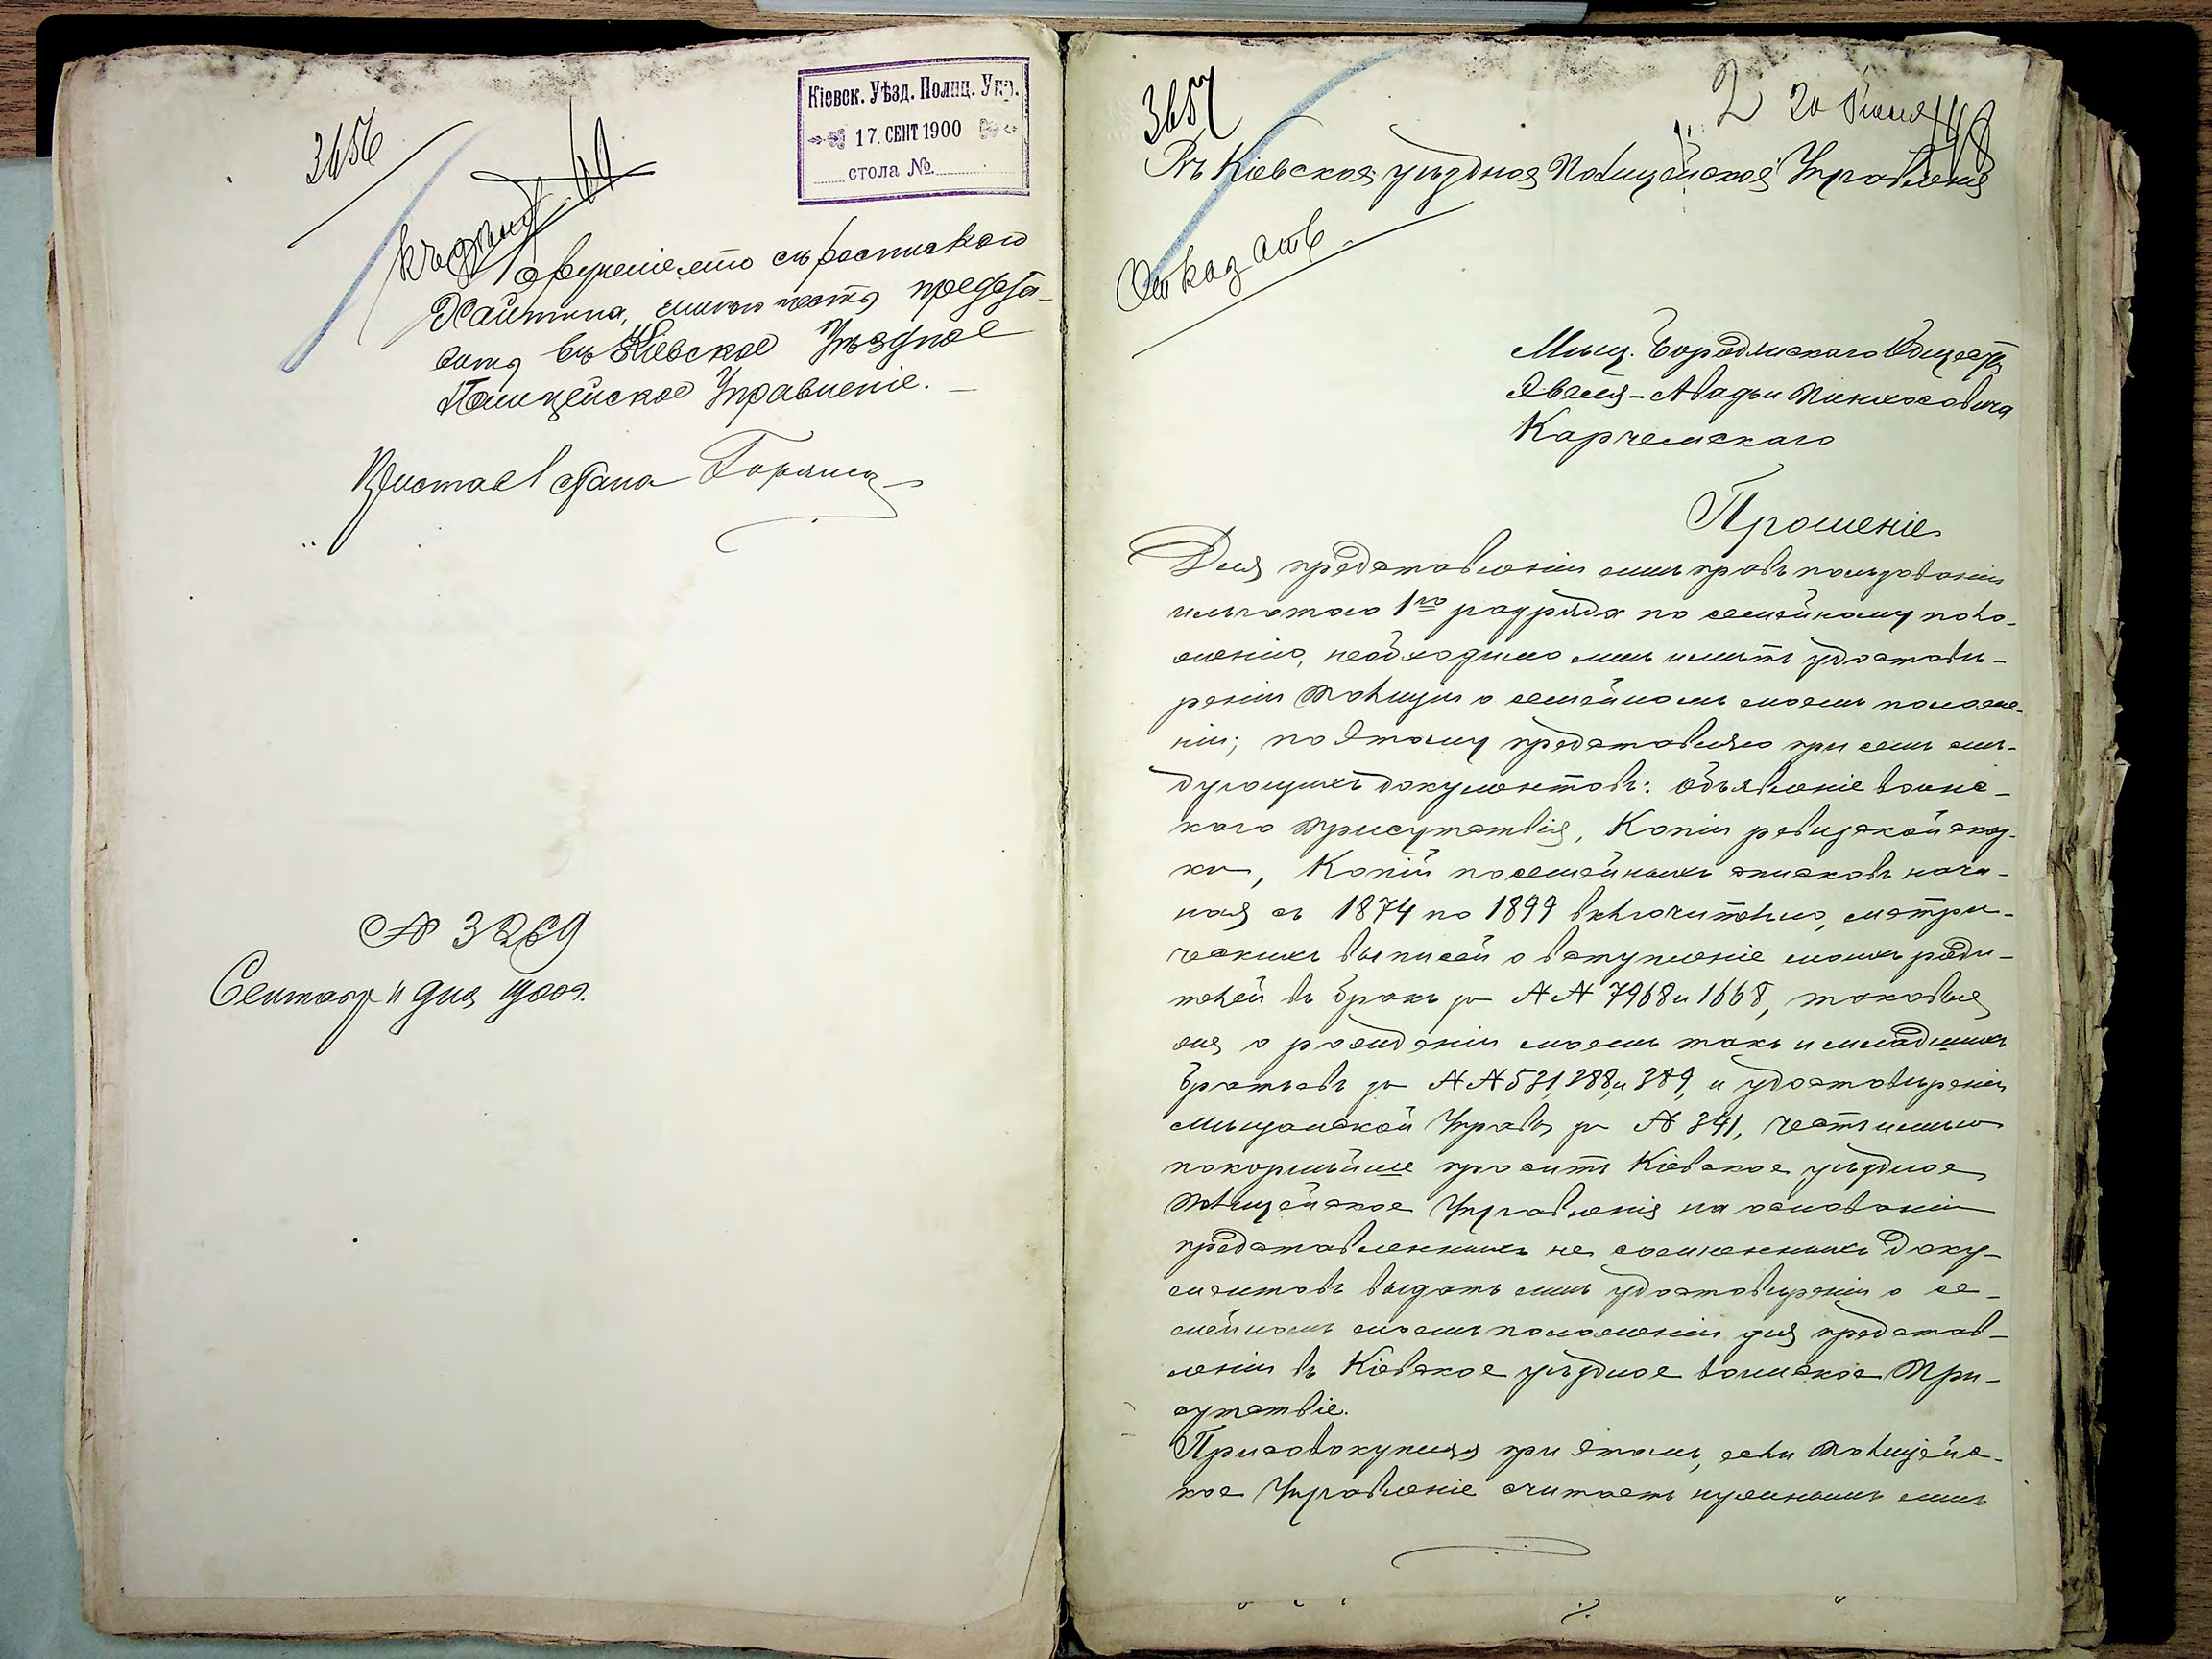 3656
Кіевск. Уѣзд. Полиц. Упр.
17. СЕНТ 1900
стола №
съ роспискою
Хаитина, имѣю честь предста-
вить въ Кіевское Уѣздное
Полицейское Управленіе. —
Приставъ Стана
№ 3269
Сентяб 11 дня 1900 г.
3657
2
20 Юня
Въ Кіевское уѣздное Полицейское Управленіе
Отказать
Мѣщ. Бородянскаго Общества
Явеля-Авадьи Пинхосовича
Карчемскаго
Прошеніе
Для предоставленія мнѣ правъ пользованія
льготою 1го разряда по семейному поло-
женію, необходимо мнѣ имѣть удостовѣ-
реніи Полиціи о семейномъ моемъ положе-
ніи; по этому представляю при семъ слѣ-
дующихъ документовъ: Объявленіе воинс-
каго присутствія, Копіи ревизской сказ-
ки, Копій посемейныхъ списковъ начи-
ная съ 1874 по 1899 включительно, метри-
ческихъ выписей о вступленіе моихъ роди-
телей въ бракъ за №№ 7968 и 1668, таковые
же о рожденіи моемъ такъ и младшихъ
братьевъ за №№ 531, 288, и 389, и удостовѣреніи
Мѣщанской Управы за № 341, честь имѣю
покорнѣйше просить Кіевское уѣздное
Полицейское Управленія на основаніи
представленныхъ не сомненныхъ доку-
ментовъ выдать мнѣ удостовѣреніи о се-
мейномъ моемъ положеніи для представ-
леніи въ Кіевское уѣздное воинское При-
сутствіе.
Присовокупляя при этомъ, если Полицейс-
кое Управленіе считаетъ нужнымъ мнѣ